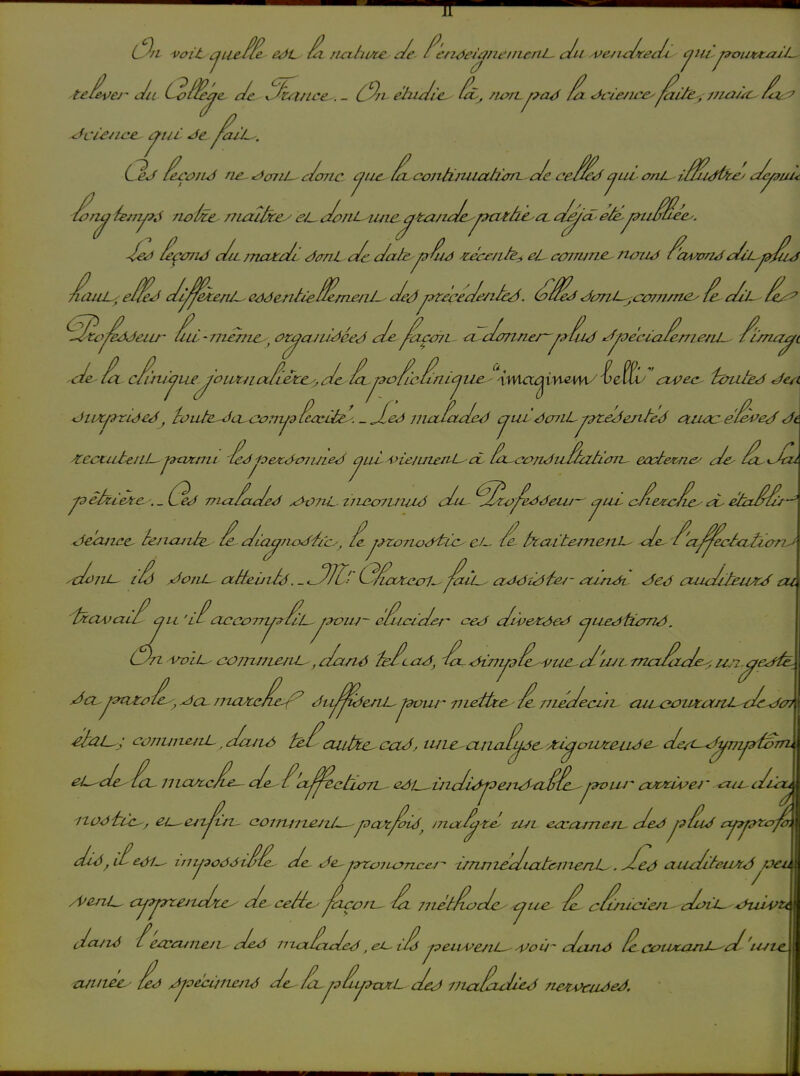 II
On voit quelle est la nature de l'enseignement du vendredi qui pourrait
relever du Collège de France. _ On étudie là, non pas la Science faite, mais la
Science qui se fait.
Ces leçons ne sont donc que la continuation de celles qui ont illustré depuis
longtemps notre maître et dont une grande partie a déjà été publiée.
Les leçons du mardi sont de date plus récente, et comme nous l'avons dit plus
haut, elles diffèrent essentiellement des précédentes. Elles sont, comme le dit le
Professeur lui-même, organisées de façon à donner plus spécialement l'image
de la clinique journalière, de la policlinique "imaginem belli" avec toutes ses
surprises, toute sa complexité. _ Les malades qui sont présentés aux élèves se
recrutent parmi les personnes qui viennent à la consultation externe de la Sal
pêtrière. _ Ces malades sont inconnus du Professeur qui cherche à établir
séance tenante le diagnostic, le pronostic et le traitement de l'affection
dont ils sont atteints. _ Mr Charcot fait assister ainsi ses auditeurs au
travail qu'il accomplit pour élucider ces diverses questions.
On voit comment, dans tel cas, la simple vue d'un malade, un geste,
sa parole, sa marche suffisent pour mettre le médecin au courant de son
état; comment, dans tel autre cas, une analyse rigoureuse des symptômes
et de la marche de l'affection est indispensable pour arriver au diag
nostic, et enfin comment parfois, malgré un examen des plus appro fon
dis, il est impossible de se prononcer immédiatement. Les auditeurs peu
vent apprendre de cette façon la méthode que le clinicien doit suivre
dans l'examen des malades, et ils peuvent voir dans le courant d'une
année les spécimens de la plupart des maladies nerveuses.